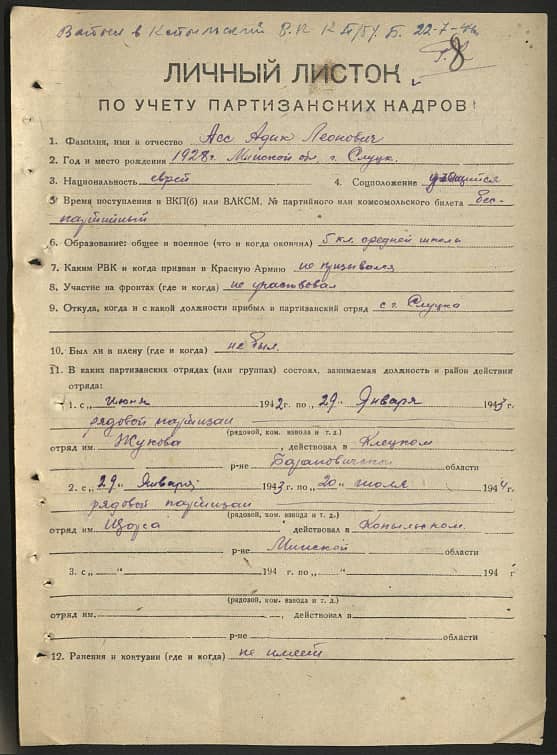 22-7-44
8
ЛИЧНЫЙ ЛИСТОК
ПО УЧЕТУ ПАРТИЗАНСКИХ КАДРОВ
1. Фамилия, имя и отчество Асс Адик Леонович
2. Год и место рождения 1928г. Минской об. г. Слуцк.
3. Национальность еврей 4. Соцположение учащийся
5. Время поступления в ВКП(б) или ВЛКСМ, № партийного или комсомольского билета бес-
партийный
6. Образование: общее и военное (что и когда окончил) 5 кл. средней школы
7. Каким РВК и когда призван в Красную Армию не призывался
8. Участие на фронтах (где и когда) не участвовал
9. Откуда, когда и с какой должности прибыл в партизанский отряд с г. Слуцка
10. Был ли в плену (где и когда) не был.
11. В каких партизанских отрядах (или группах) состоял, занимаемая должность и район действия
отряда:
1. с „ июня 1942 г. по „29„ Января 1943 г.
рядовой партизан
(рядовой, ком. взвода и т. д.)
отряд им. Жукова, действовал в Клецком
р-не Барановичской области
2. с „29„ Января 1943 г. по „20„ июля 1944 г.
рядовой партизан
(рядовой, ком. взвода и т. д.)
отряд им. Щорса действовал в Копыльском
р-не Минской области
3. с „ “ 194 г. по „ “ 194 г
(рядовой, ком. взвода и т. д.)
отряд им. , действовал в
р-не области
12. Ранения и контузии (где и когда) не имеет